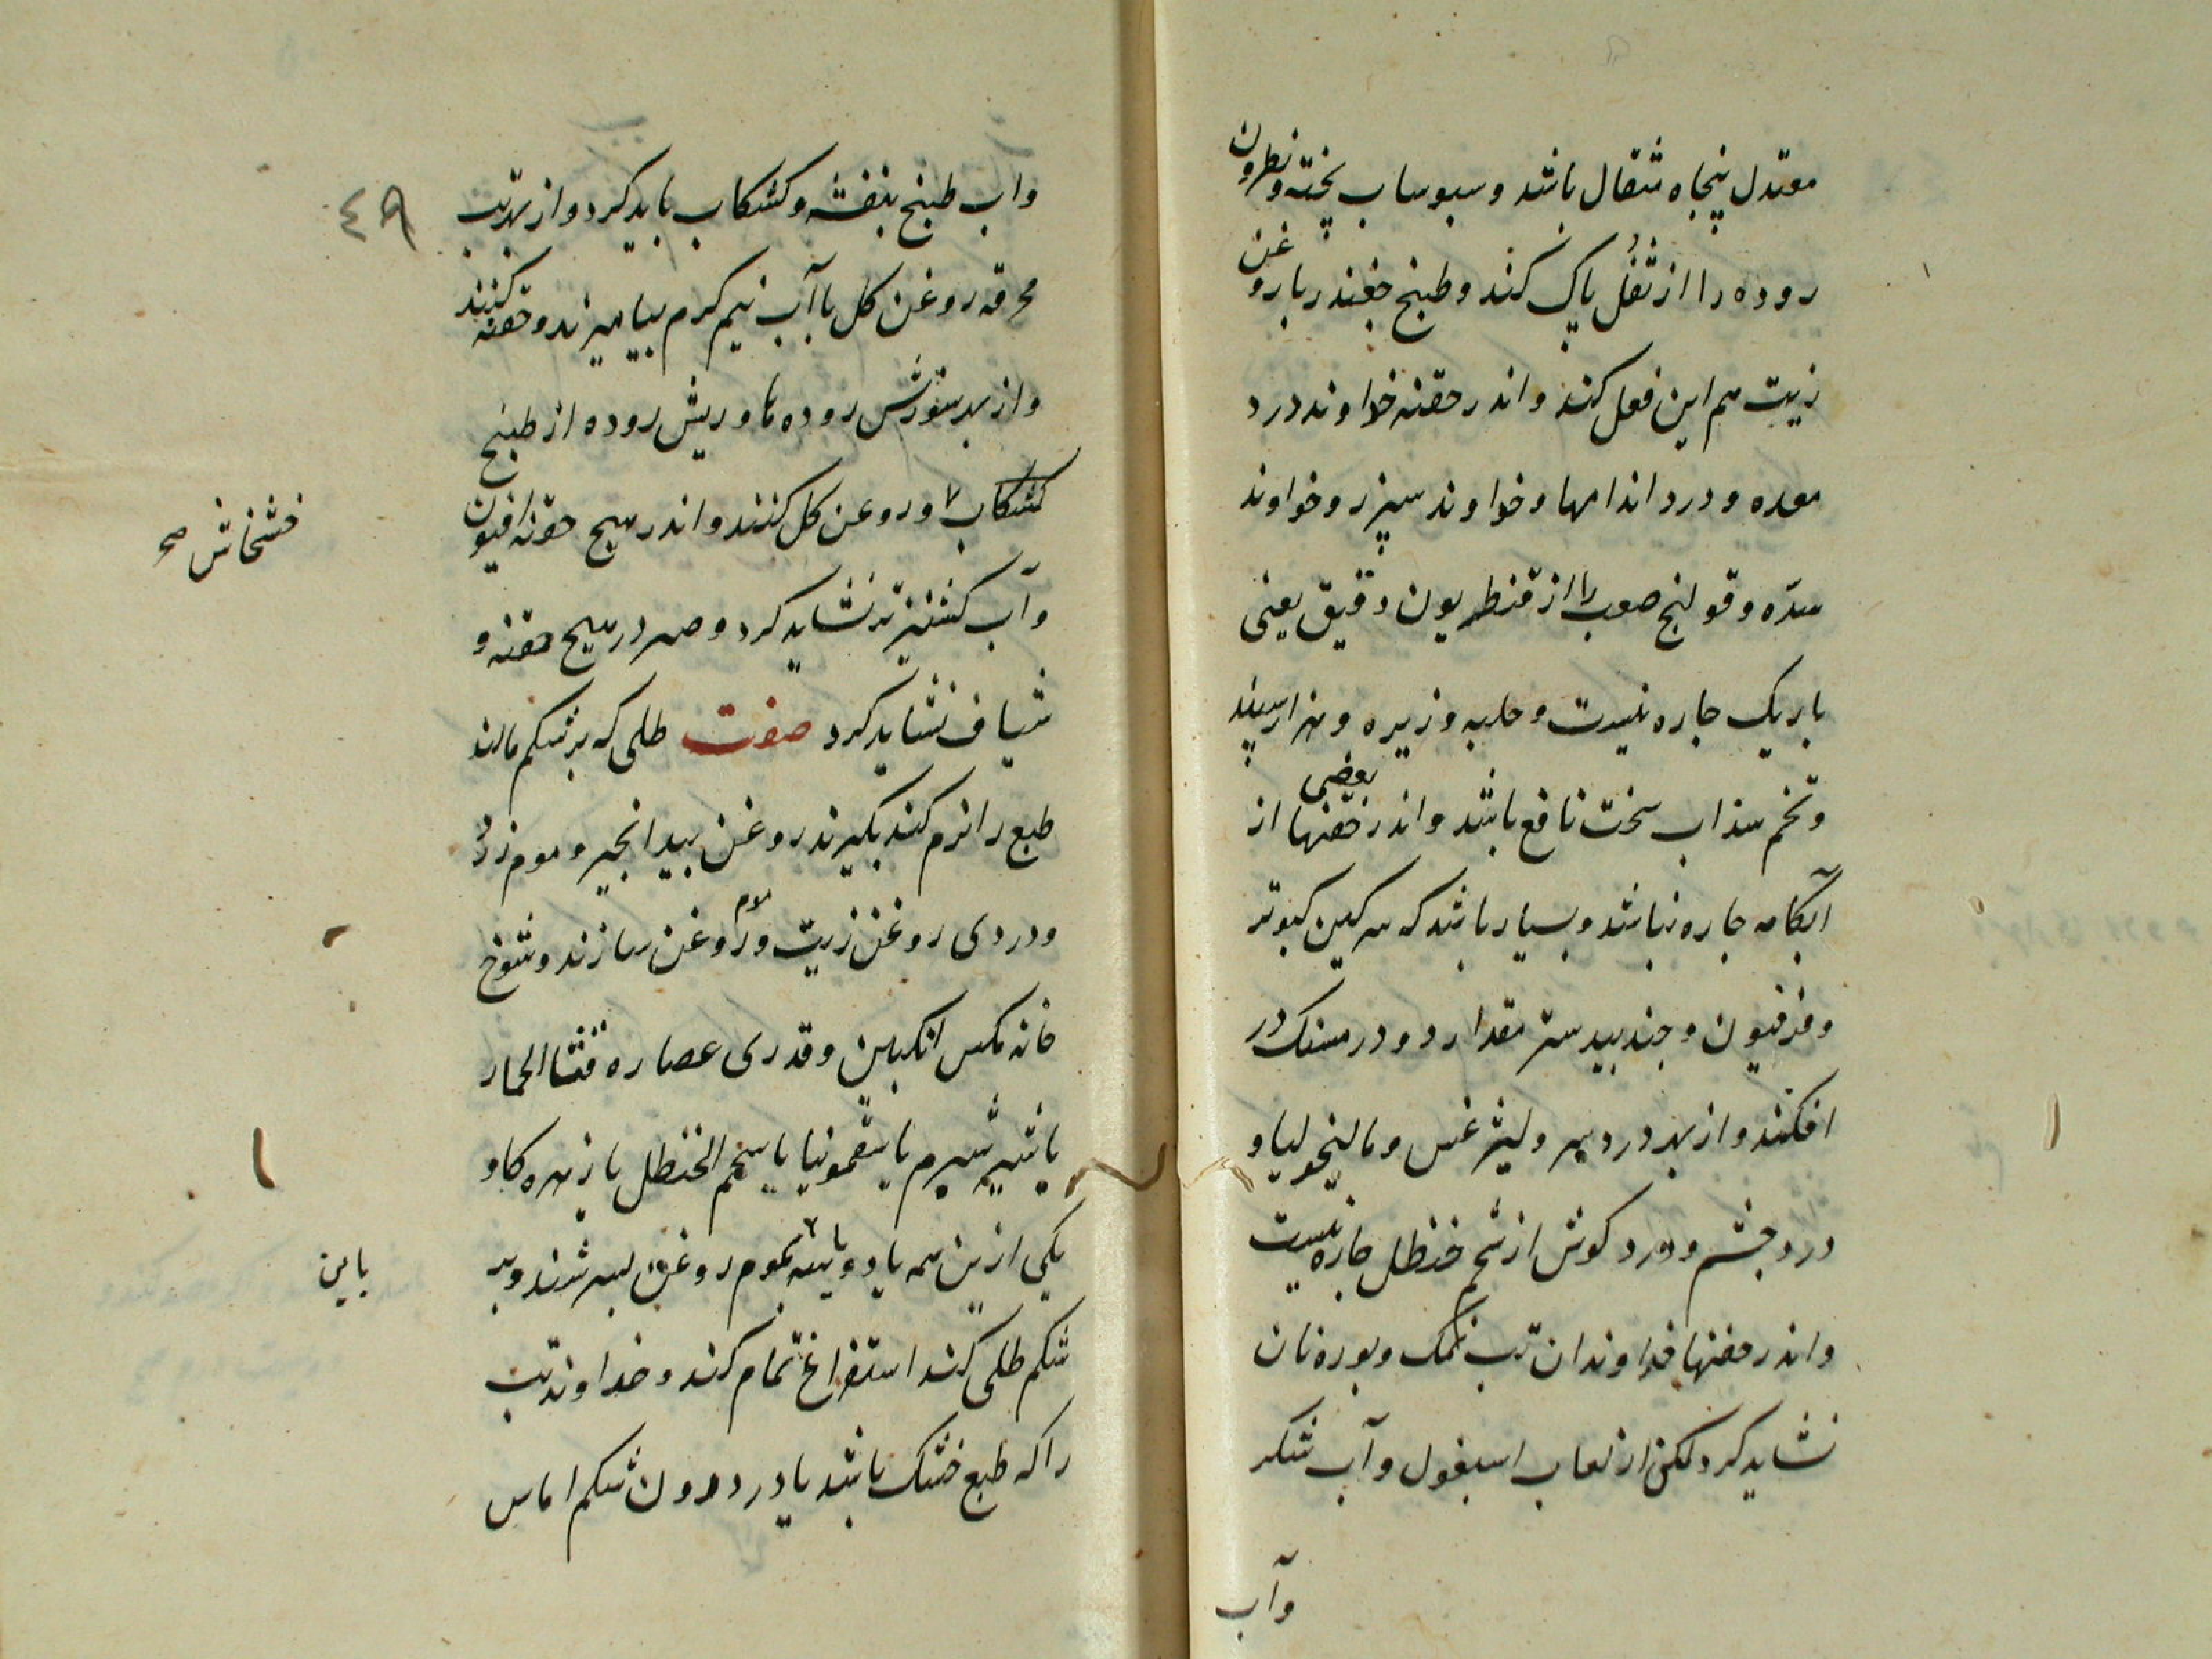 معتدل پنجاه مثقال باشد و سبوساب پخته و نطرون
روده را از ثفل پاک کند و طبیخ جغندر با روغن
زیت هم این فعل کند و اندر حقنه خداوند درد
معده و درد اندامها و خداوند سپرز و خداوند
سدّه و قولنج صعب را از قنطریون دقیق یعنی
باریک جاره نیست و حلبه و زیره و هزار سپند
و تخم سذاب سخت نافع باشد و اندر بعضی حقنها از
آبکامه جاره نباشد و بسیار باشد که سرکین کبوتر
و فرفیون و جندبیدستر مقدار دو درمسنک در
افکنند و از بهر درد سر و لیثرغس و مالیخولیا و
درد جشم و درد کوش از شحم حنظل جاره نیست
و اندر حقنها خداوندان تب نمک و بوره نان
نشاید کرد لکن از لعاب اسبغول و آب شکر
وآب
واب طبیخ بنفشه و کشکاب باید کرد و از بهر تب
٤٩
محرقه روغن کل با آب نیم کرم بیامیزند و حقنه کنند
و از بهر سوزش روده ها و ریش روده از طبیخ
کشکاب و روغن کل کنند و اندر هیج حقنه افیون
خشخاش صح
و آب کشنیز تر نشاید کرد و صبر در هیج حقنه و
شیاف نشاید کرد صفت طلی که بر شکم مالند
طبع را نرم کند بکیرند روغن بید انجیر و موم زرد
و دردی روغن زیت و موم روغن سازند و شوخ
خانه مکس انکبین و قدری عصاره قثثا الحمار
یا شیر شبرم یا سقمونیا یا شحم الحنظل یا زهره کاو
یکی ازین همه یا دو یا سه بموم روغن بسرشند و بر
باین
شکم طلی کنند استفراغ تمام کند و خداوند تب
را که طبع خشک باشد یا در درون شکم اماس